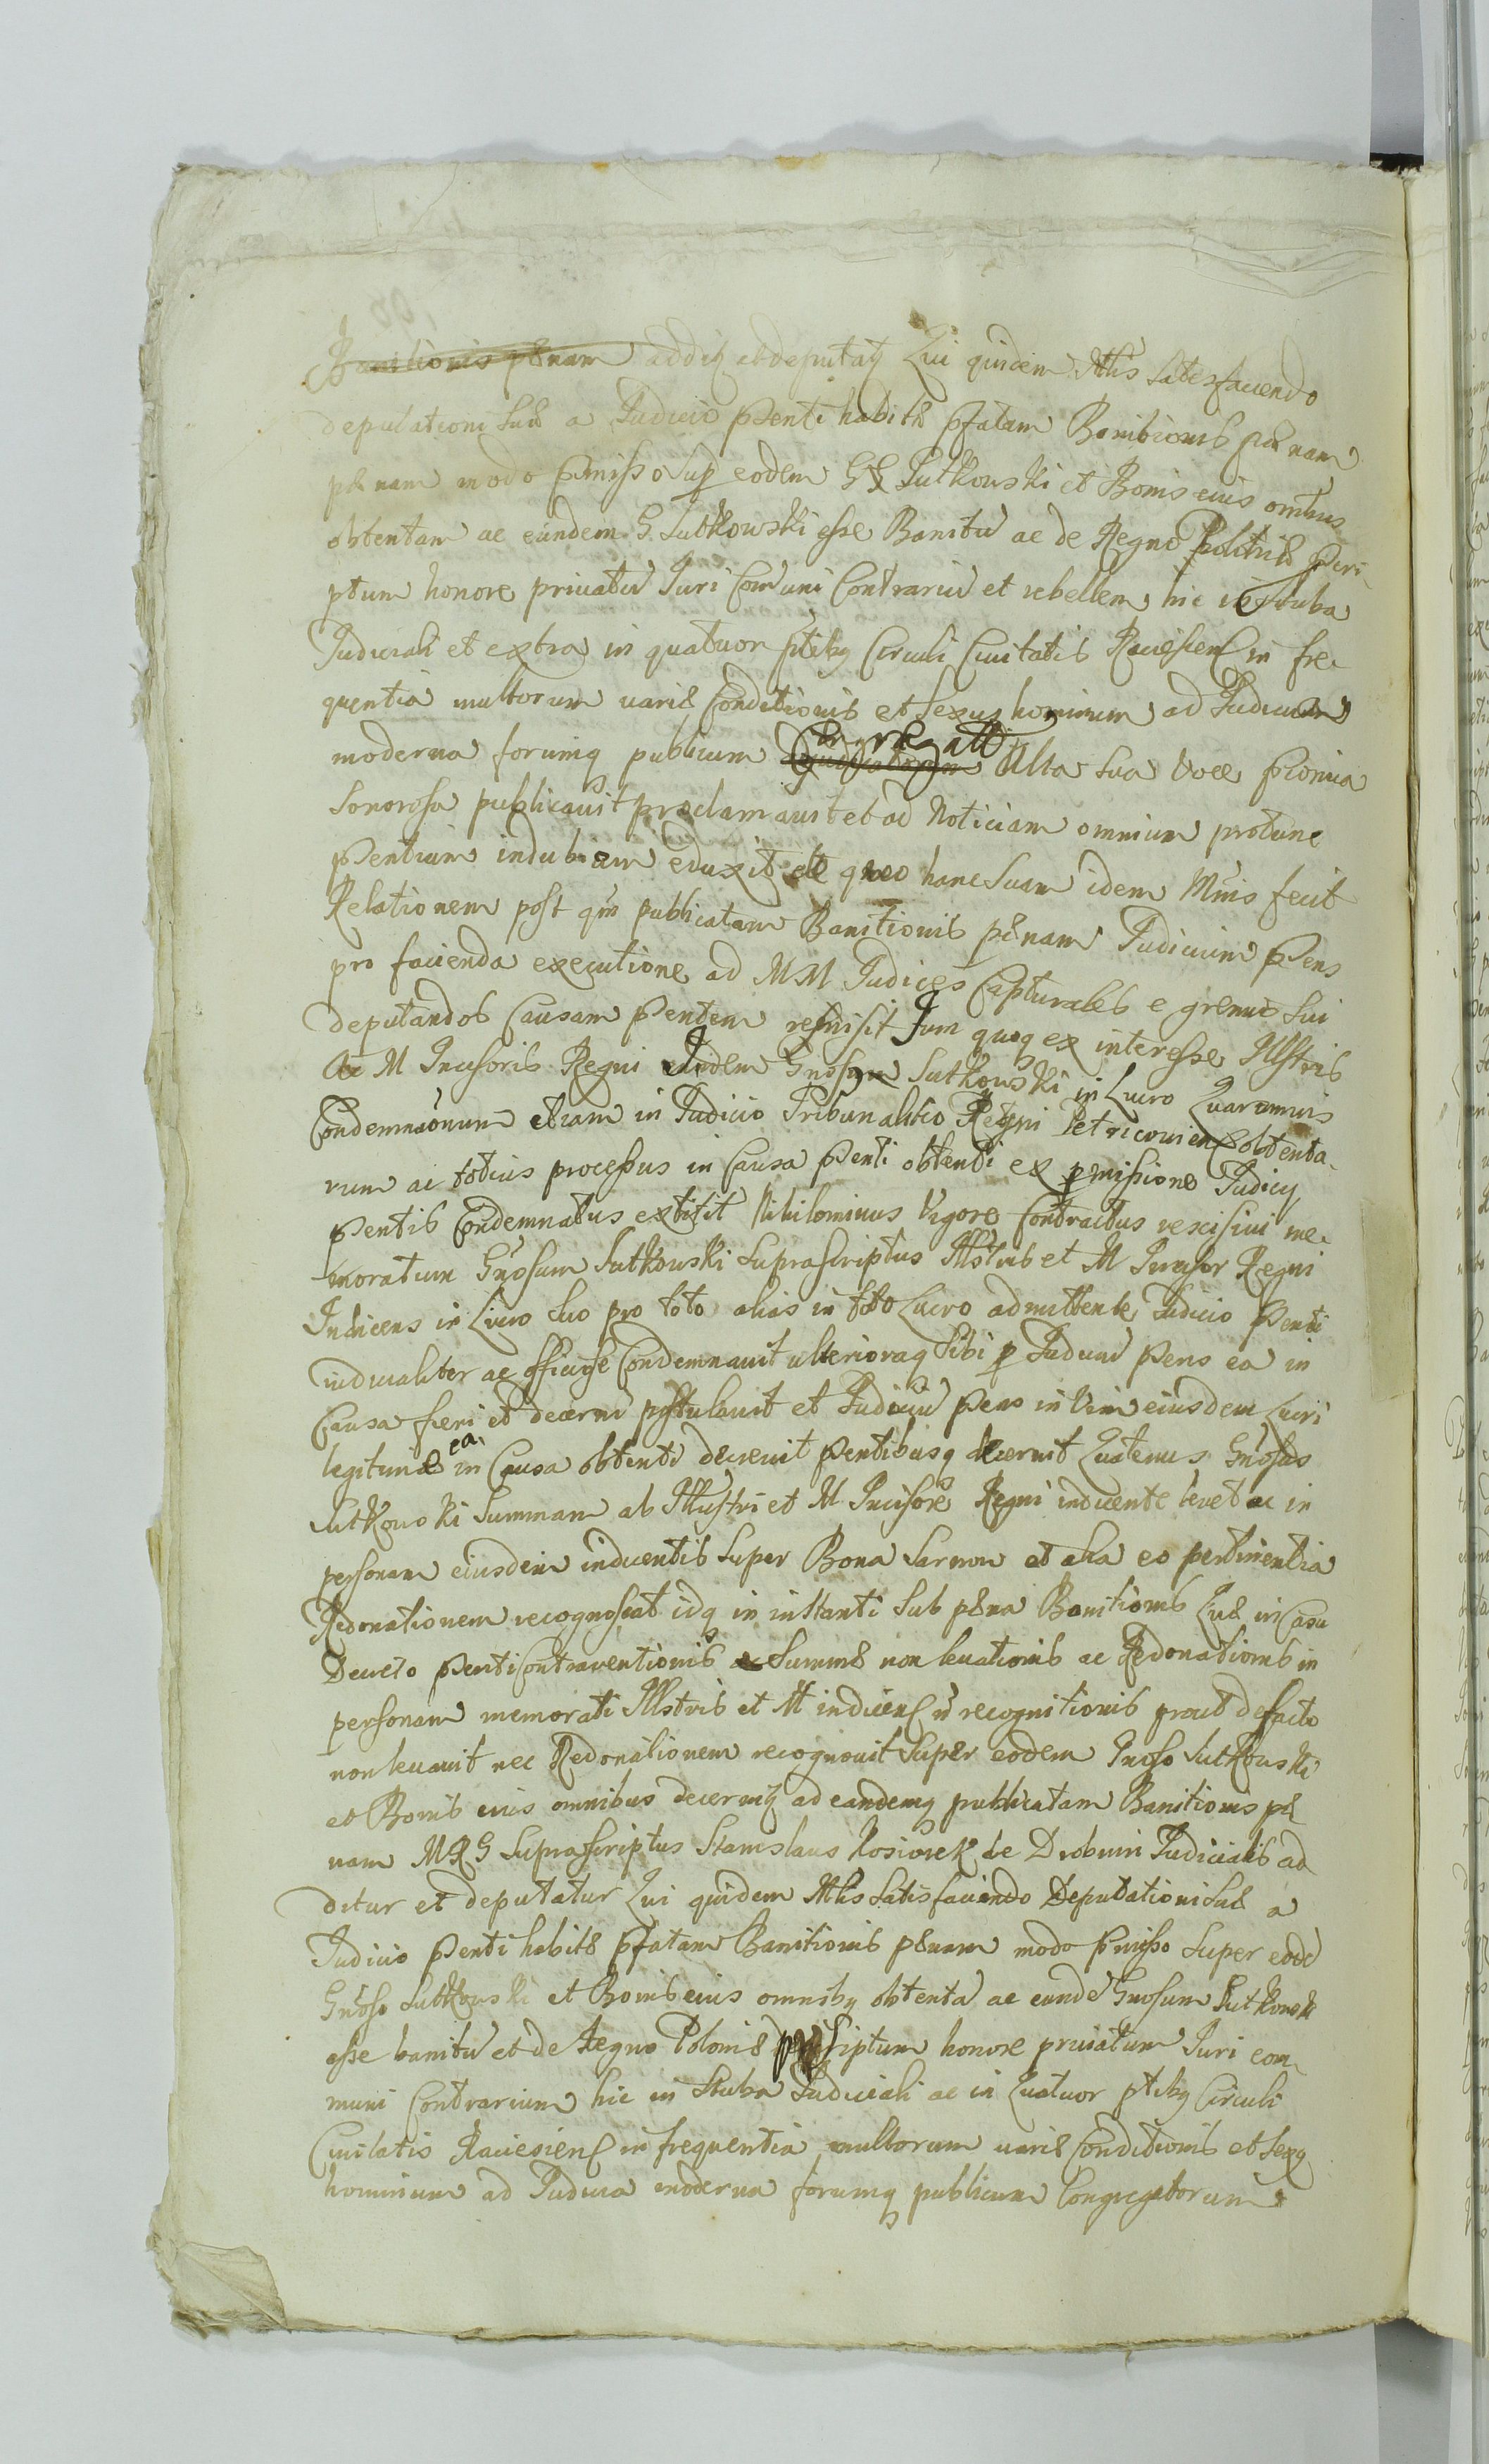 Banitionis pænam additq et deputatq Qui quidem Mtlis satisfaciendo
deputationi suæ a Judicio pñti habitæ pfatam Banitionis pænam
pænam modo pmisso sup eodem G Sutkowski et Bonis eius omibus
obtentam ac eundem G. Sutkowski esse Banitu ac de Regno Poloniæ pscri
ptum honore privatu Juri Comuni Contrariu et rebellem hic in Stuba
Judiciali et extra in quatuor ptibq Circuli Civitatis Raviesien in fre-
quentia multorum variæ Conditionis et sexus hominum ad Judicia
moderna forumq publicum Congregatt Alta sua voce
sonorosa publicavit proclamavit et ad Noticiam omnium protunc
psentium indubiam eduxit de quo hanc suam idem Mnis fecit
Relationem post qm publicatam Banitionis pænam Judicium psens
pro facienda executione ad MM Judices Capturales e gremio sui
deputandos Causam psentem remisit Tum quoq ex interesse Illstris
ac M Incisoris Regni eundem Gnosum Sutkowski in Lucro Quarumvis
Condemnaonum etiam in Judicio Tribunalitio Regni Petricovien obtenta-
rum ac totius processus in Causa psenti obtenti ex pmissione Judicy
psentis Condemnatus extitit Nihilominus Vigore Contractus rescisivi me-
moratum Gnosum Sutkowski Suprascriptus Illstris et M Incisor Regni
Inducens in Lucro suo pro toto alias in toto Lucro admittente Judicio psenti
iudicialiter ac officiose Condemnavit ulterioraq sibi p Judiciu psens ea in
Causa fieri et decerni postulavit et Judiciu psens in Vim eiusdem Lucri
legitime in ea Causa obtenti decrevit psentibusq decernit Quatenus Gnosus
Sutkowski Summam ab Illustri et M Incisore Regni inducente levet ac in
personam eiusdem inducentis super Bona Sarnow et alia eo pertinentia
Redonationem recognoscat idq in instanti sub pæna Banitionis Quæ in Casu
Decreto psenti Contraventionis ac Summæ non levationis ac Redonationis in
personam memorati Illstris et M inducen n recognitionis prout de facto
non levavit nec Redonationem recognovit super eodem Gnoso Sutkowski
et Bonis eius omnibus decernitq ad eandemq publicatam Banitionis pæ
nam MRG Suprascriptus Stanislaus Kosiorek de Drobnin Judicialis ad
ditur et deputatur Qui quidem Mtlis satisfaciendo Deputationi suæ a
Judicio psenti habitæ pfatam Banitionis pænam modo pmisso super eode
Gnoso Sutkowski et Bonis eius omnibq obtenta ac eunde Gnosum Sutkowski
esse banitu et de Regno Poloniæ pscriptum honore privatum Juri com
muni Contrarium hic in Stuba Judiciali ac in Quatuor ptibq Circuli
Civitatis Raviesien in frequentia multorum variæ Conditionis et sexq
hominum ad Judicia moderna forumq publicum Congregatorum